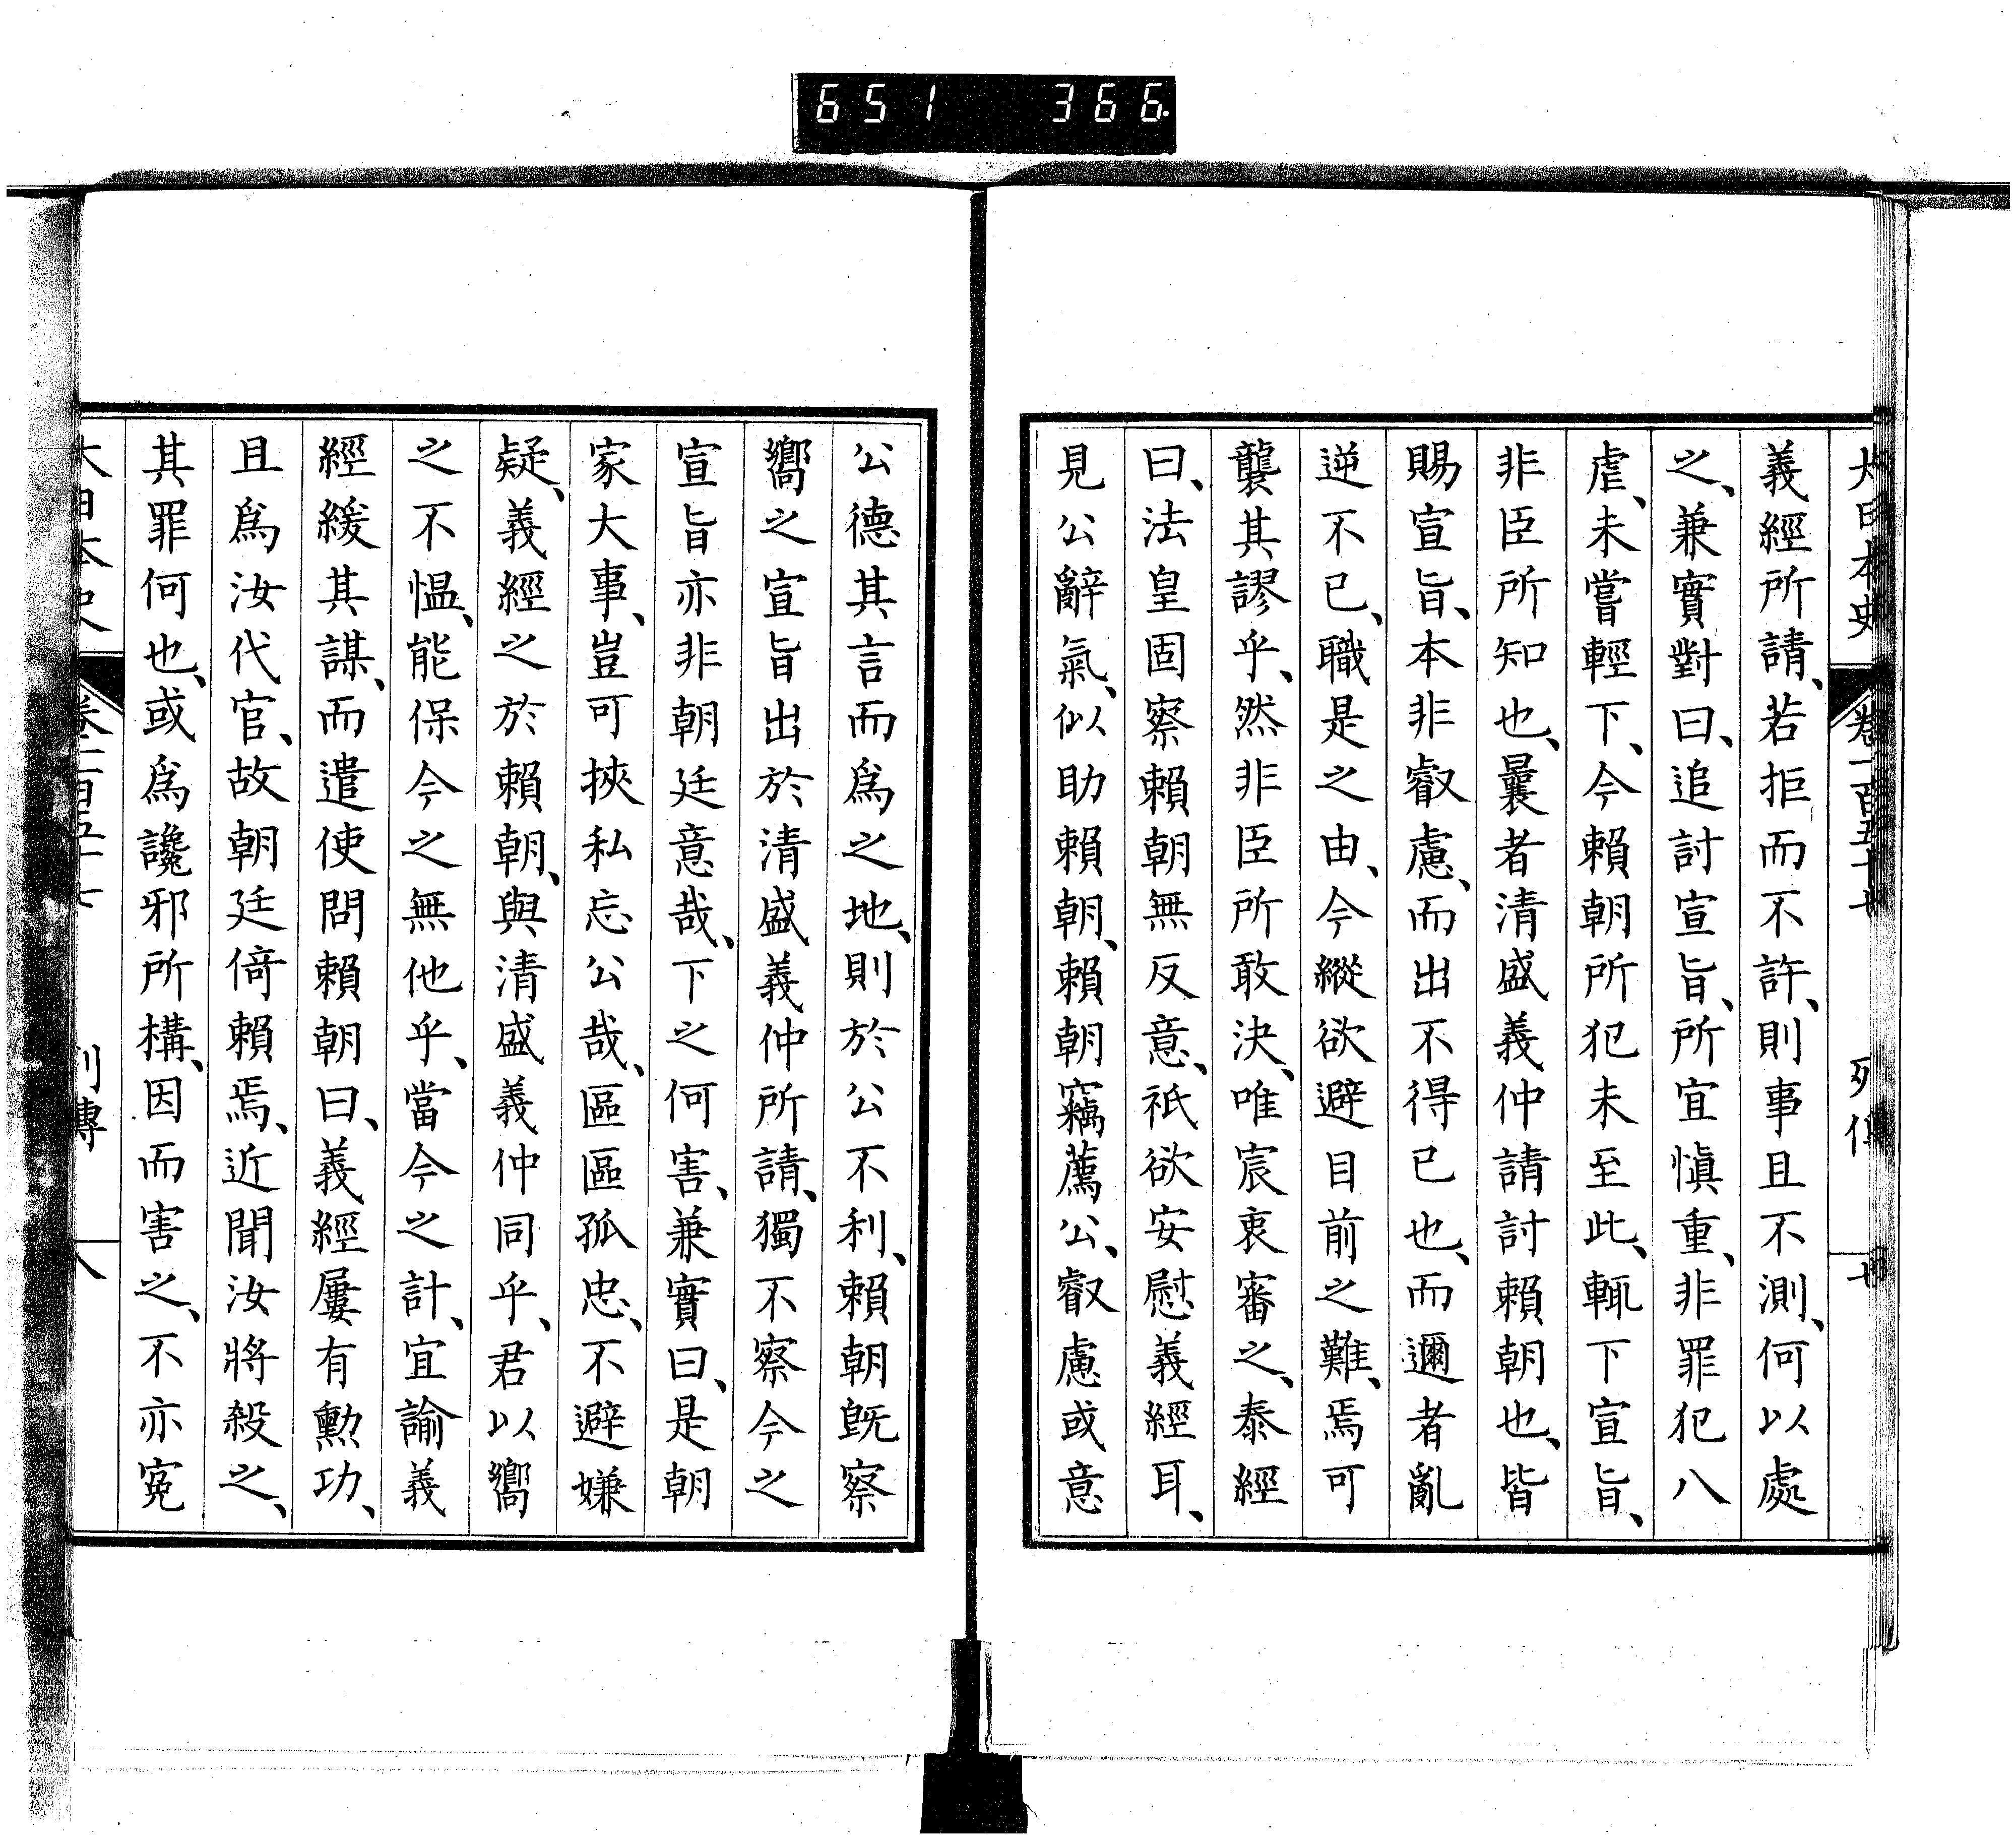 651 366
大日本史 卷一百五十七 列傳 七
義經所請、若拒而不許、則事且不測、何以處
之、兼實對曰、追討宣旨、所宜愼重、非罪犯八
虐、未嘗輕下、今賴朝所犯未至此、輒下宣旨、
非臣所知也、曩者清盛義仲請討賴朝也、皆
賜宣旨、本非叡慮、而出不得已也、而邇者亂
逆不已、職是之由、今縱欲避目前之難、焉可
襲其謬乎、然非臣所敢決、唯宸衷審之、泰經
曰、法皇固察賴朝無反意、祇欲安慰義經耳、
見公辭氣、似助賴朝、賴朝竊薦公、叡慮或意
公德其言而爲之地、則於公不利、賴朝旣察
嚮之宣旨出於清盛義仲所請、獨不察今之
宣旨亦非朝廷意哉、下之何害、兼實曰、是朝
家大事、豈可挾私忘公哉、區區孤忠、不避嫌
疑、義經之於賴朝、與清盛義仲同乎、君以嚮
之不慍、能保今之無他乎、當今之計、宜諭義
經緩其謀、而遣使問賴朝曰、義經屢有勳功、
且爲汝代官、故朝廷倚賴焉、近聞汝將殺之、
其罪何也、或爲讒邪所構、因而害之、不亦寃
大日本史 卷一百五十七 列傳 八